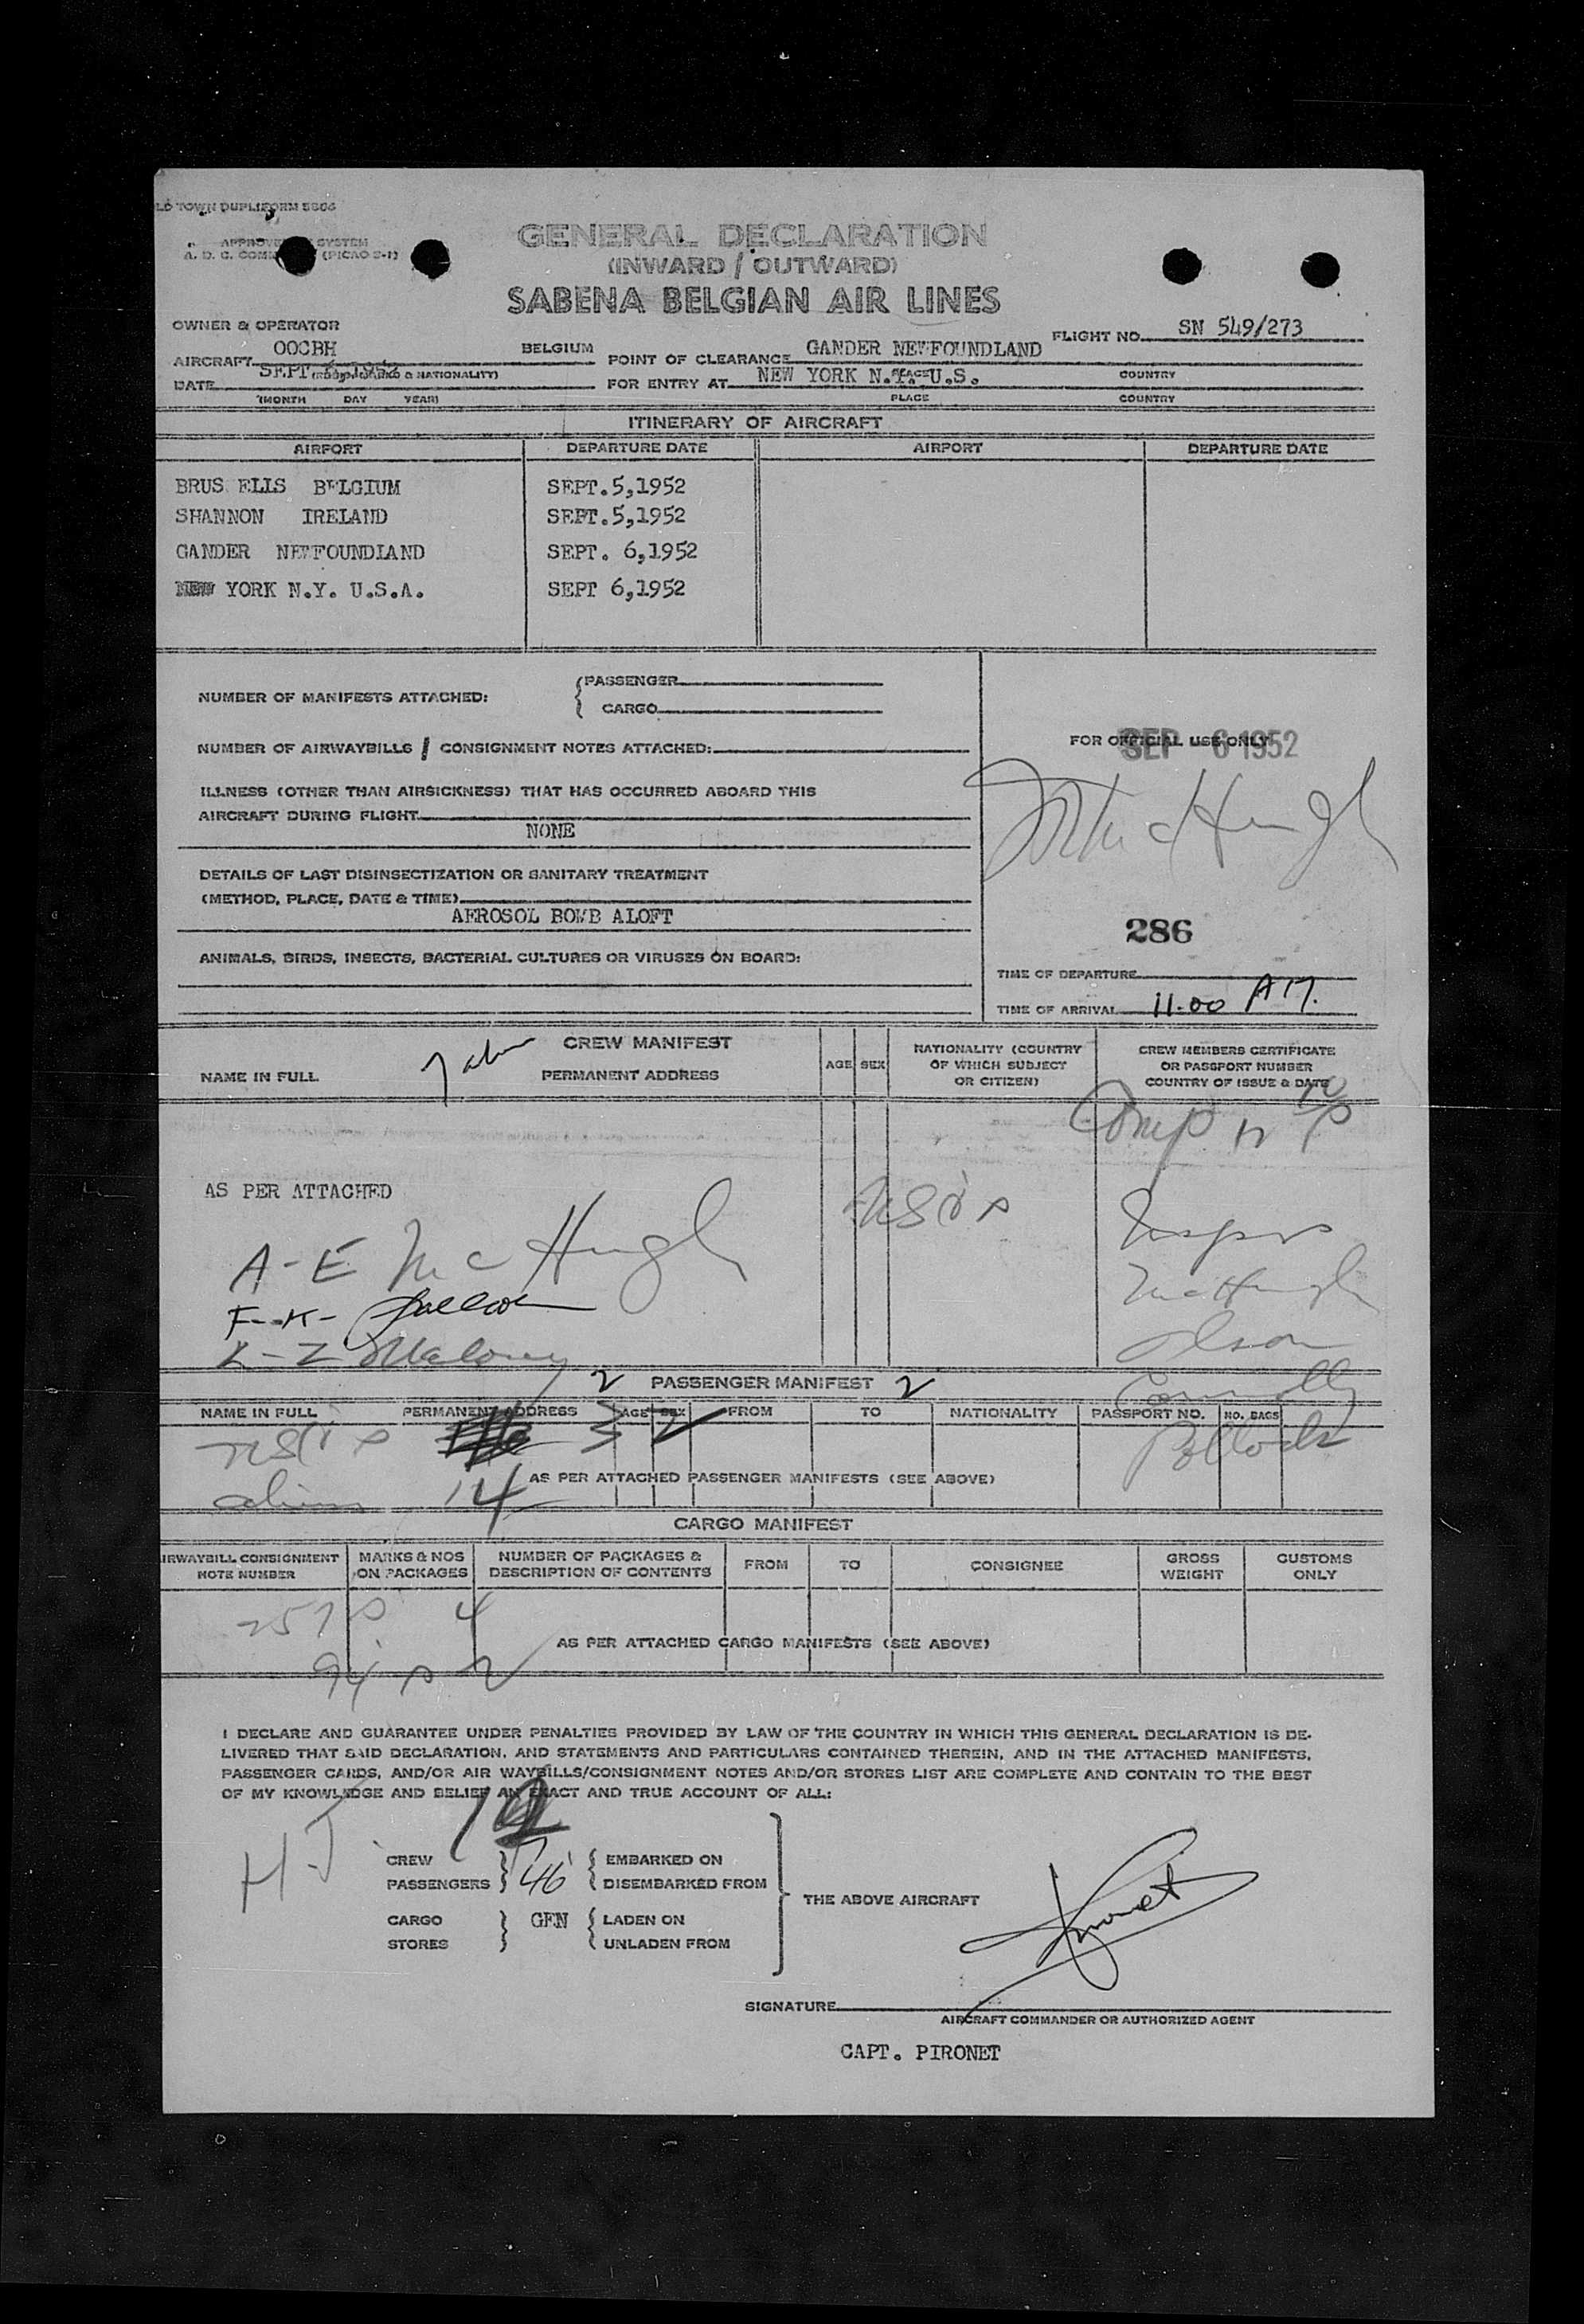 LD TOWN DUPLIFORM 5806
APPROVED SYSTEM
A. D. C. COM (PICAO S-1)
GENERAL DECLARATION
(INWARD / OUTWARD)
SABENA BELGIAN AIR LINES
OWNER & OPERATOR
FLIGHT NO. SN 549/273
AIRCRAFT OOCBH BELGIUM POINT OF CLEARANCE GANDER NEWFOUNDLAND
DATE SEPT FOR ENTRY AT NEW YORK N.Y. U.S. COUNTRY
(MONTH DAY YEAR) PLACE COUNTRY
ITINERARY OF AIRCRAFT
AIRPORT DEPARTURE DATE AIRPORT DEPARTURE DATE
BRUS ELLS BELGIUM SEPT.5,1952
SHANNON IRELAND SEPT.5,1952
GANDER NEWFOUNDLAND SEPT. 6,1952
NEW YORK N.Y. U.S.A. SEPT 6,1952
NUMBER OF MANIFESTS ATTACHED: PASSENGER
CARGO
NUMBER OF AIRWAYBILLS / CONSIGNMENT NOTES ATTACHED:
FOR OFFICIAL USE ONLY
SEP 6 1952
ILLNESS (OTHER THAN AIRSICKNESS) THAT HAS OCCURRED ABOARD THIS
AIRCRAFT DURING FLIGHT
NONE
McHugh
DETAILS OF LAST DISINSECTIZATION OR SANITARY TREATMENT
(METHOD, PLACE, DATE & TIME)
AEROSOL BOMB ALOFT
286
ANIMALS, BIRDS, INSECTS, BACTERIAL CULTURES OR VIRUSES ON BOARD:
TIME OF DEPARTURE
TIME OF ARRIVAL 11.00 AM.
CREW MANIFEST
NAME IN FULL PERMANENT ADDRESS AGE SEX NATIONALITY (COUNTRY OF WHICH SUBJECT OR CITIZEN) CREW MEMBERS CERTIFICATE OR PASSPORT NUMBER COUNTRY OF ISSUE & DATE
AS PER ATTACHED
Insprs
A-E McHugh
McHugh
F-K-
Olson
L-Z Maloney
2 PASSENGER MANIFEST 2
Connolly
NAME IN FULL PERMANENT ADDRESS AGE SEX FROM TO NATIONALITY PASSPORT NO. NO. BAGS
Pollock
AS PER ATTACHED PASSENGER MANIFESTS (SEE ABOVE)
aliens 14
CARGO MANIFEST
IRWAYBILL CONSIGNMENT NOTE NUMBER MARKS & NOS ON PACKAGES NUMBER OF PACKAGES & DESCRIPTION OF CONTENTS FROM TO CONSIGNEE GROSS WEIGHT CUSTOMS ONLY
257 4
AS PER ATTACHED CARGO MANIFESTS (SEE ABOVE)
94 2
I DECLARE AND GUARANTEE UNDER PENALTIES PROVIDED BY LAW OF THE COUNTRY IN WHICH THIS GENERAL DECLARATION IS DE-
LIVERED THAT SAID DECLARATION, AND STATEMENTS AND PARTICULARS CONTAINED THEREIN, AND IN THE ATTACHED MANIFESTS,
PASSENGER CARDS, AND/OR AIR WAYBILLS/CONSIGNMENT NOTES AND/OR STORES LIST ARE COMPLETE AND CONTAIN TO THE BEST
OF MY KNOWLEDGE AND BELIEF AN EXACT AND TRUE ACCOUNT OF ALL:
HJ
CREW EMBARKED ON
PASSENGERS 46 DISEMBARKED FROM
THE ABOVE AIRCRAFT
Pironet
CARGO GEN LADEN ON
STORES UNLADEN FROM
SIGNATURE
AIRCRAFT COMMANDER OR AUTHORIZED AGENT
CAPT. PIRONET